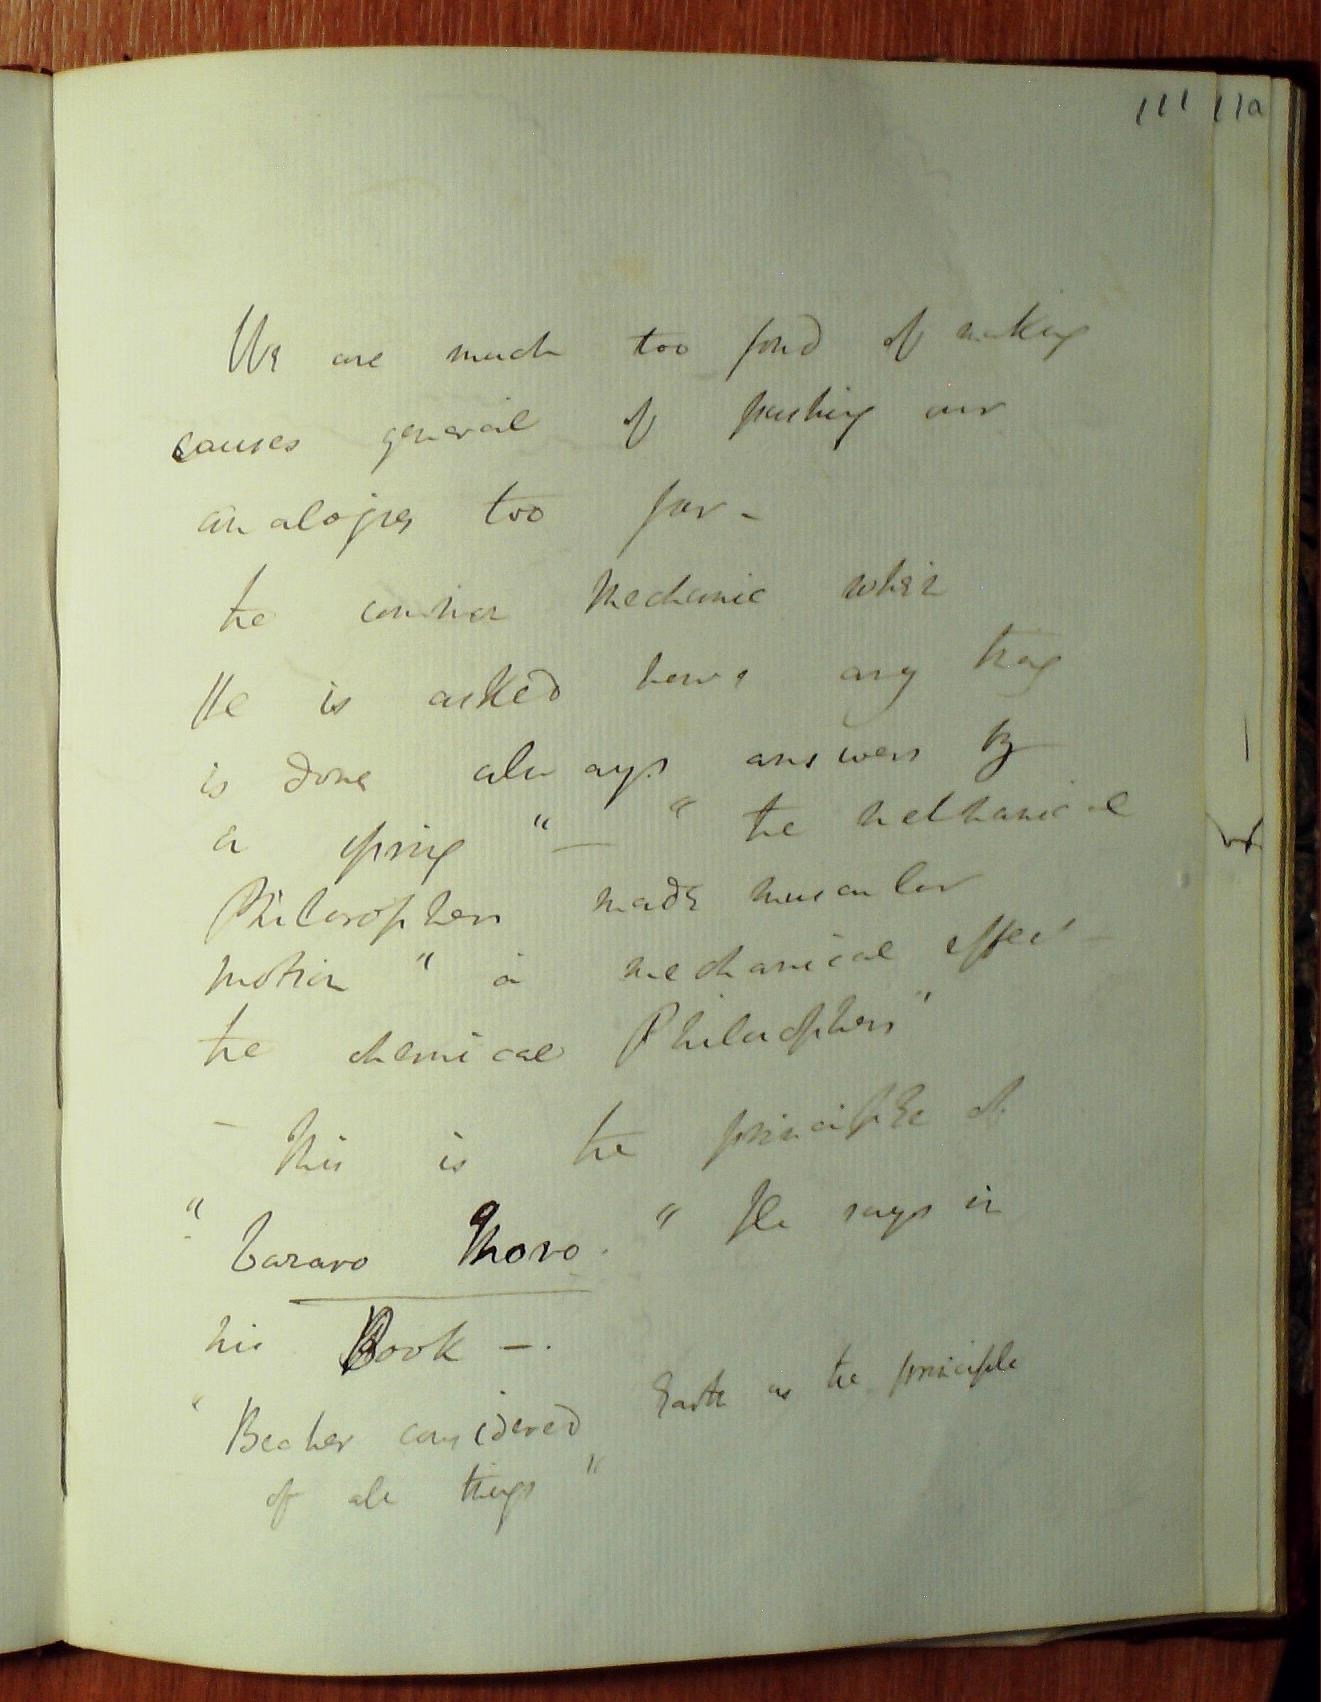 111 11a
We are much too fond of making
causes general of pushing our
analogies too far -
the common Mechanic when
He is asked how any thing
is done always answers by
a spring " — " the mechanical
Philosophers made muscular
motion " a mechanical effect -
the chemical Philosophers"
- This is the principle of
" Lazaro Moro. " He says in
his Book -.
" Becher considered Earth as the principle
of all things "